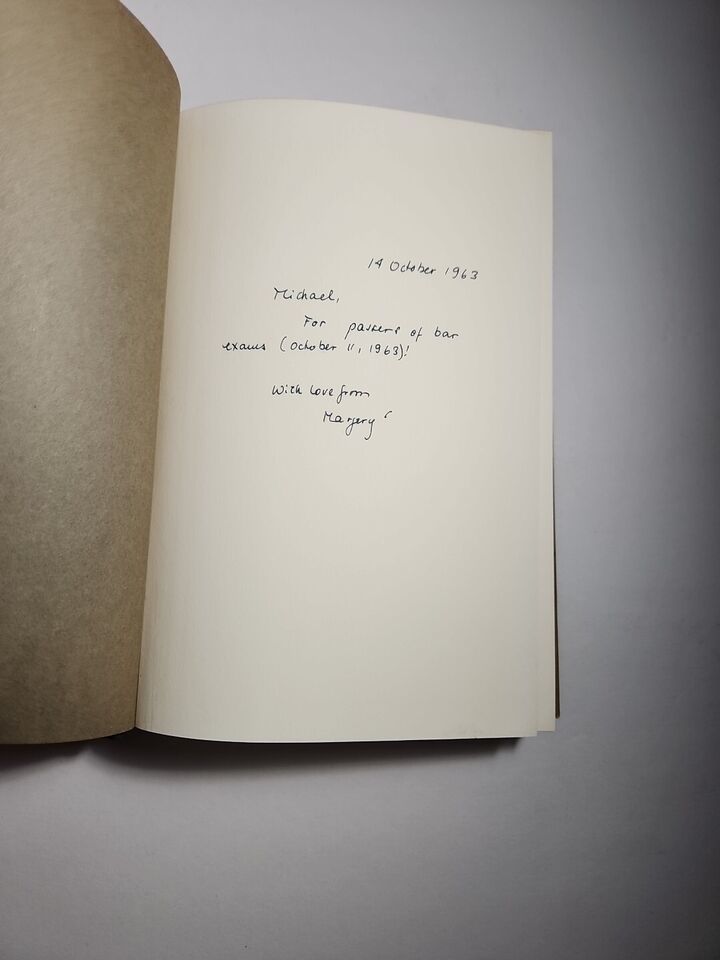 14 October 1963
Michael,
For passers of bar
exams (October 11, 1963)!
With love from
Margery